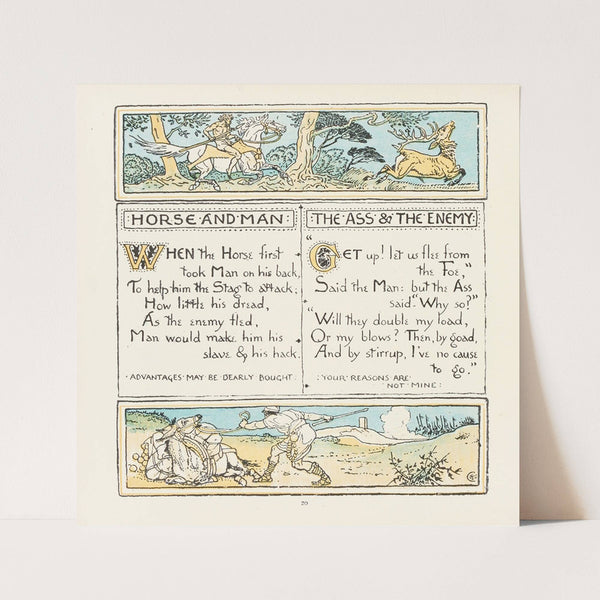 HORSE·AND·MAN:
WHEN the Horse first
took Man on his back,
To help him the Stag to attack;
How little his dread,
As the enemy fled,
Man would make him his
slave & his hack.
·ADVANTAGES·MAY·BE·DEARLY·BOUGHT·
:THE·ASS·&·THE·ENEMY:
"GET up! let us flee from
the Foe,"
Said the Man: but the Ass
said "Why so?"
"Will they double my load,
Or my blows? Then, by goad,
And by stirrup, I've no cause
to go."
:YOUR·REASONS·ARE·
NOT·MINE:
20